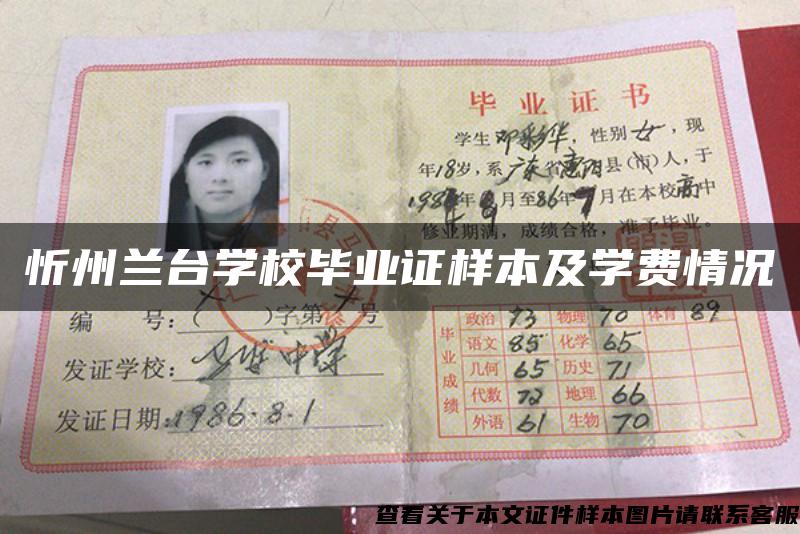 毕业证书
学生邓彩华，性别女，现
年18岁，系广东省惠阳县（市）人，于
月至86年7月在本校高中
修业期满，成绩合格，准予毕业。
忻州兰台学校毕业证样本及学费情况
编 号：（ ）字第 号
发证学校：中学
发证日期：1986.8.1
毕业成绩
政治 73 物理 70 体育 89
语文 85 化学 65
几何 65 历史 71
代数 72 地理 66
外语 61 生物 70
查看关于本文证件样本图片请联系客服